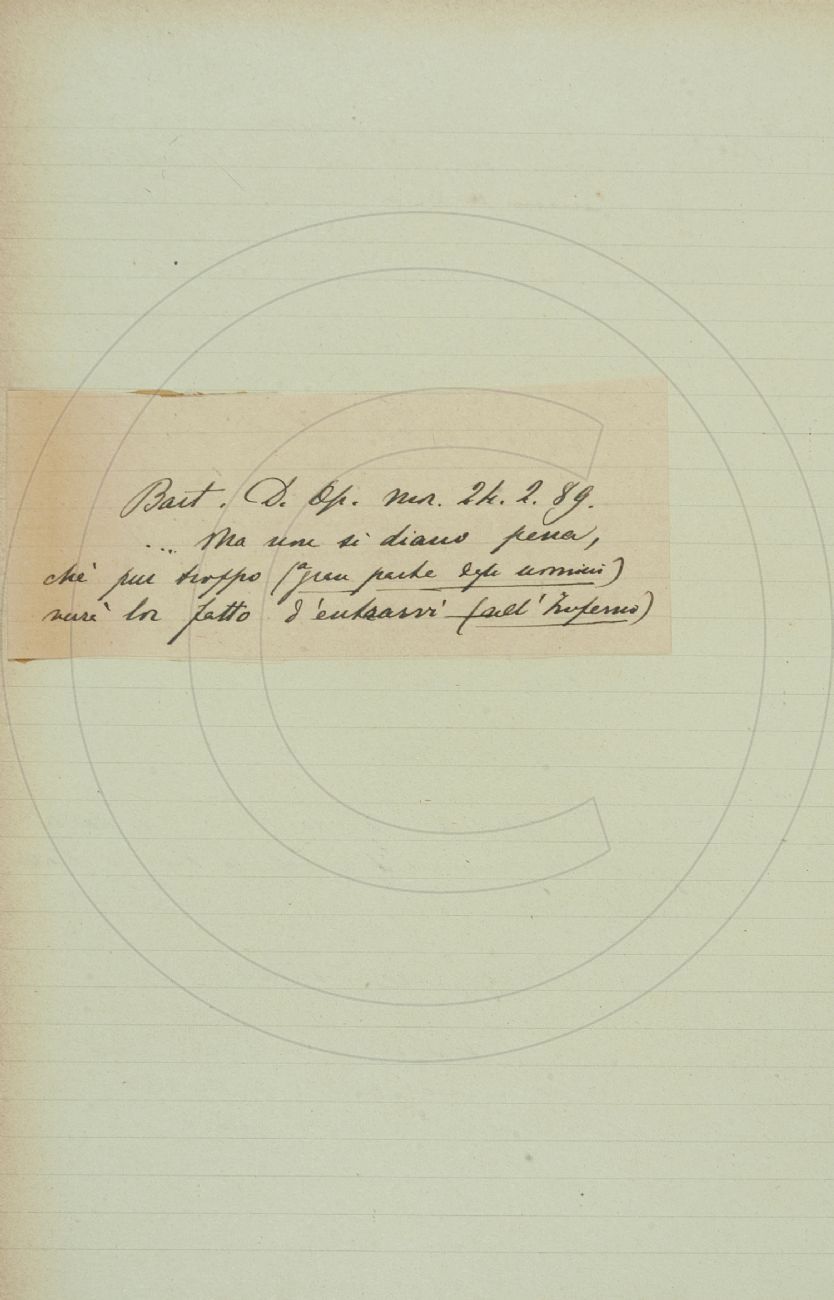 Bart. D. Op. mor. 24. 2. 89.
... Ma non si diano pena,
ché pur troppo (a gran parte degli uomini)
verrà lor fatto d'entrarvi (nell'Inferno)